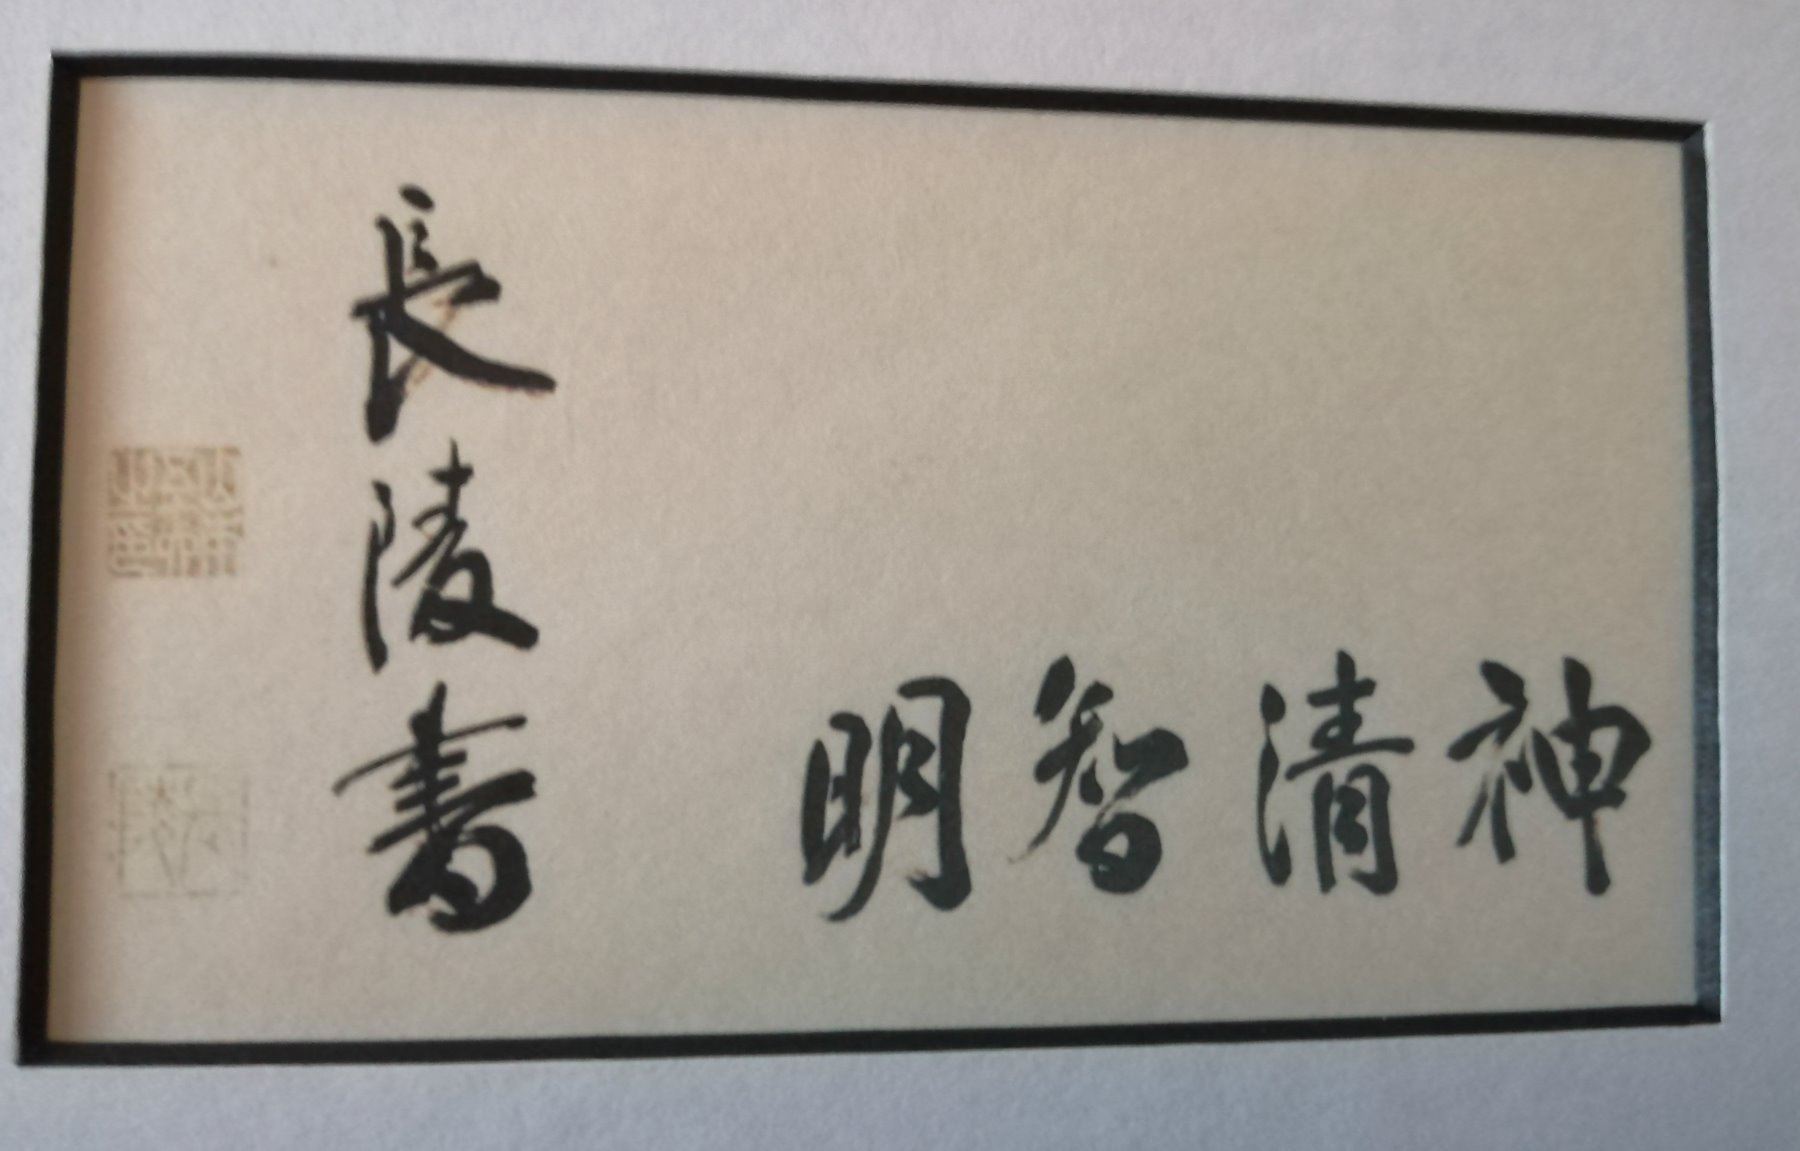 神清智明
長陵書